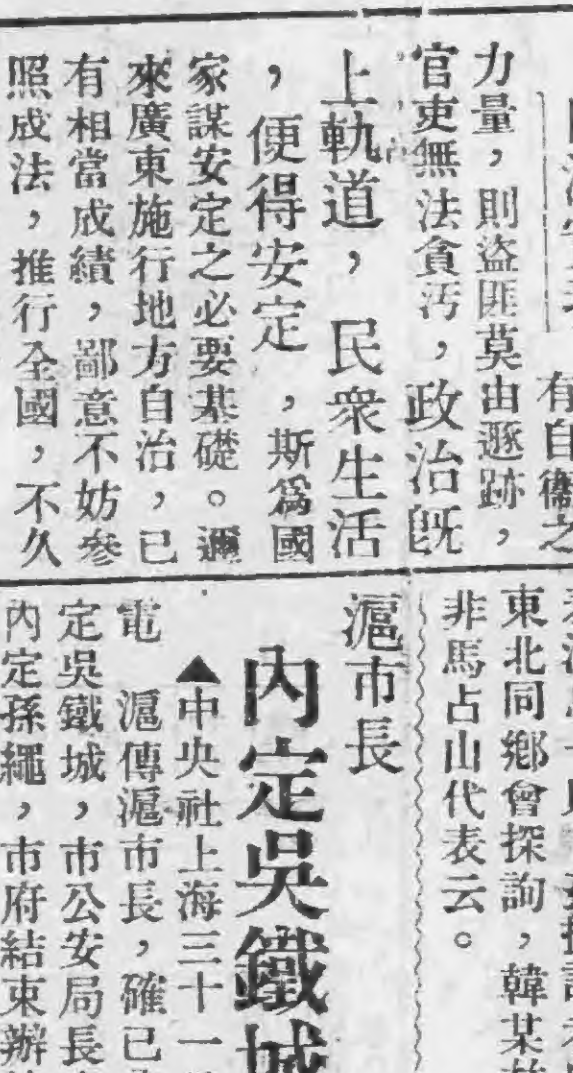 有自衞之
力量，則盜匪莫由遯跡，
官吏無法貪汚，政治旣
上軌道，民衆生活
，便得安定，斯爲國
家謀安定之必要基礎。邇
來廣東施行地方自治，已
有相當成績，鄙意不妨參
照成法，推行全國，不久
東北同鄉會探詢，韓某
非馬占山代表云。
滬市長
內定吳鐵城
▲中央社上海三十一
電　滬傳滬市長，確已
定吳鐵城，市公安局長
內定孫繩，市府結束辦